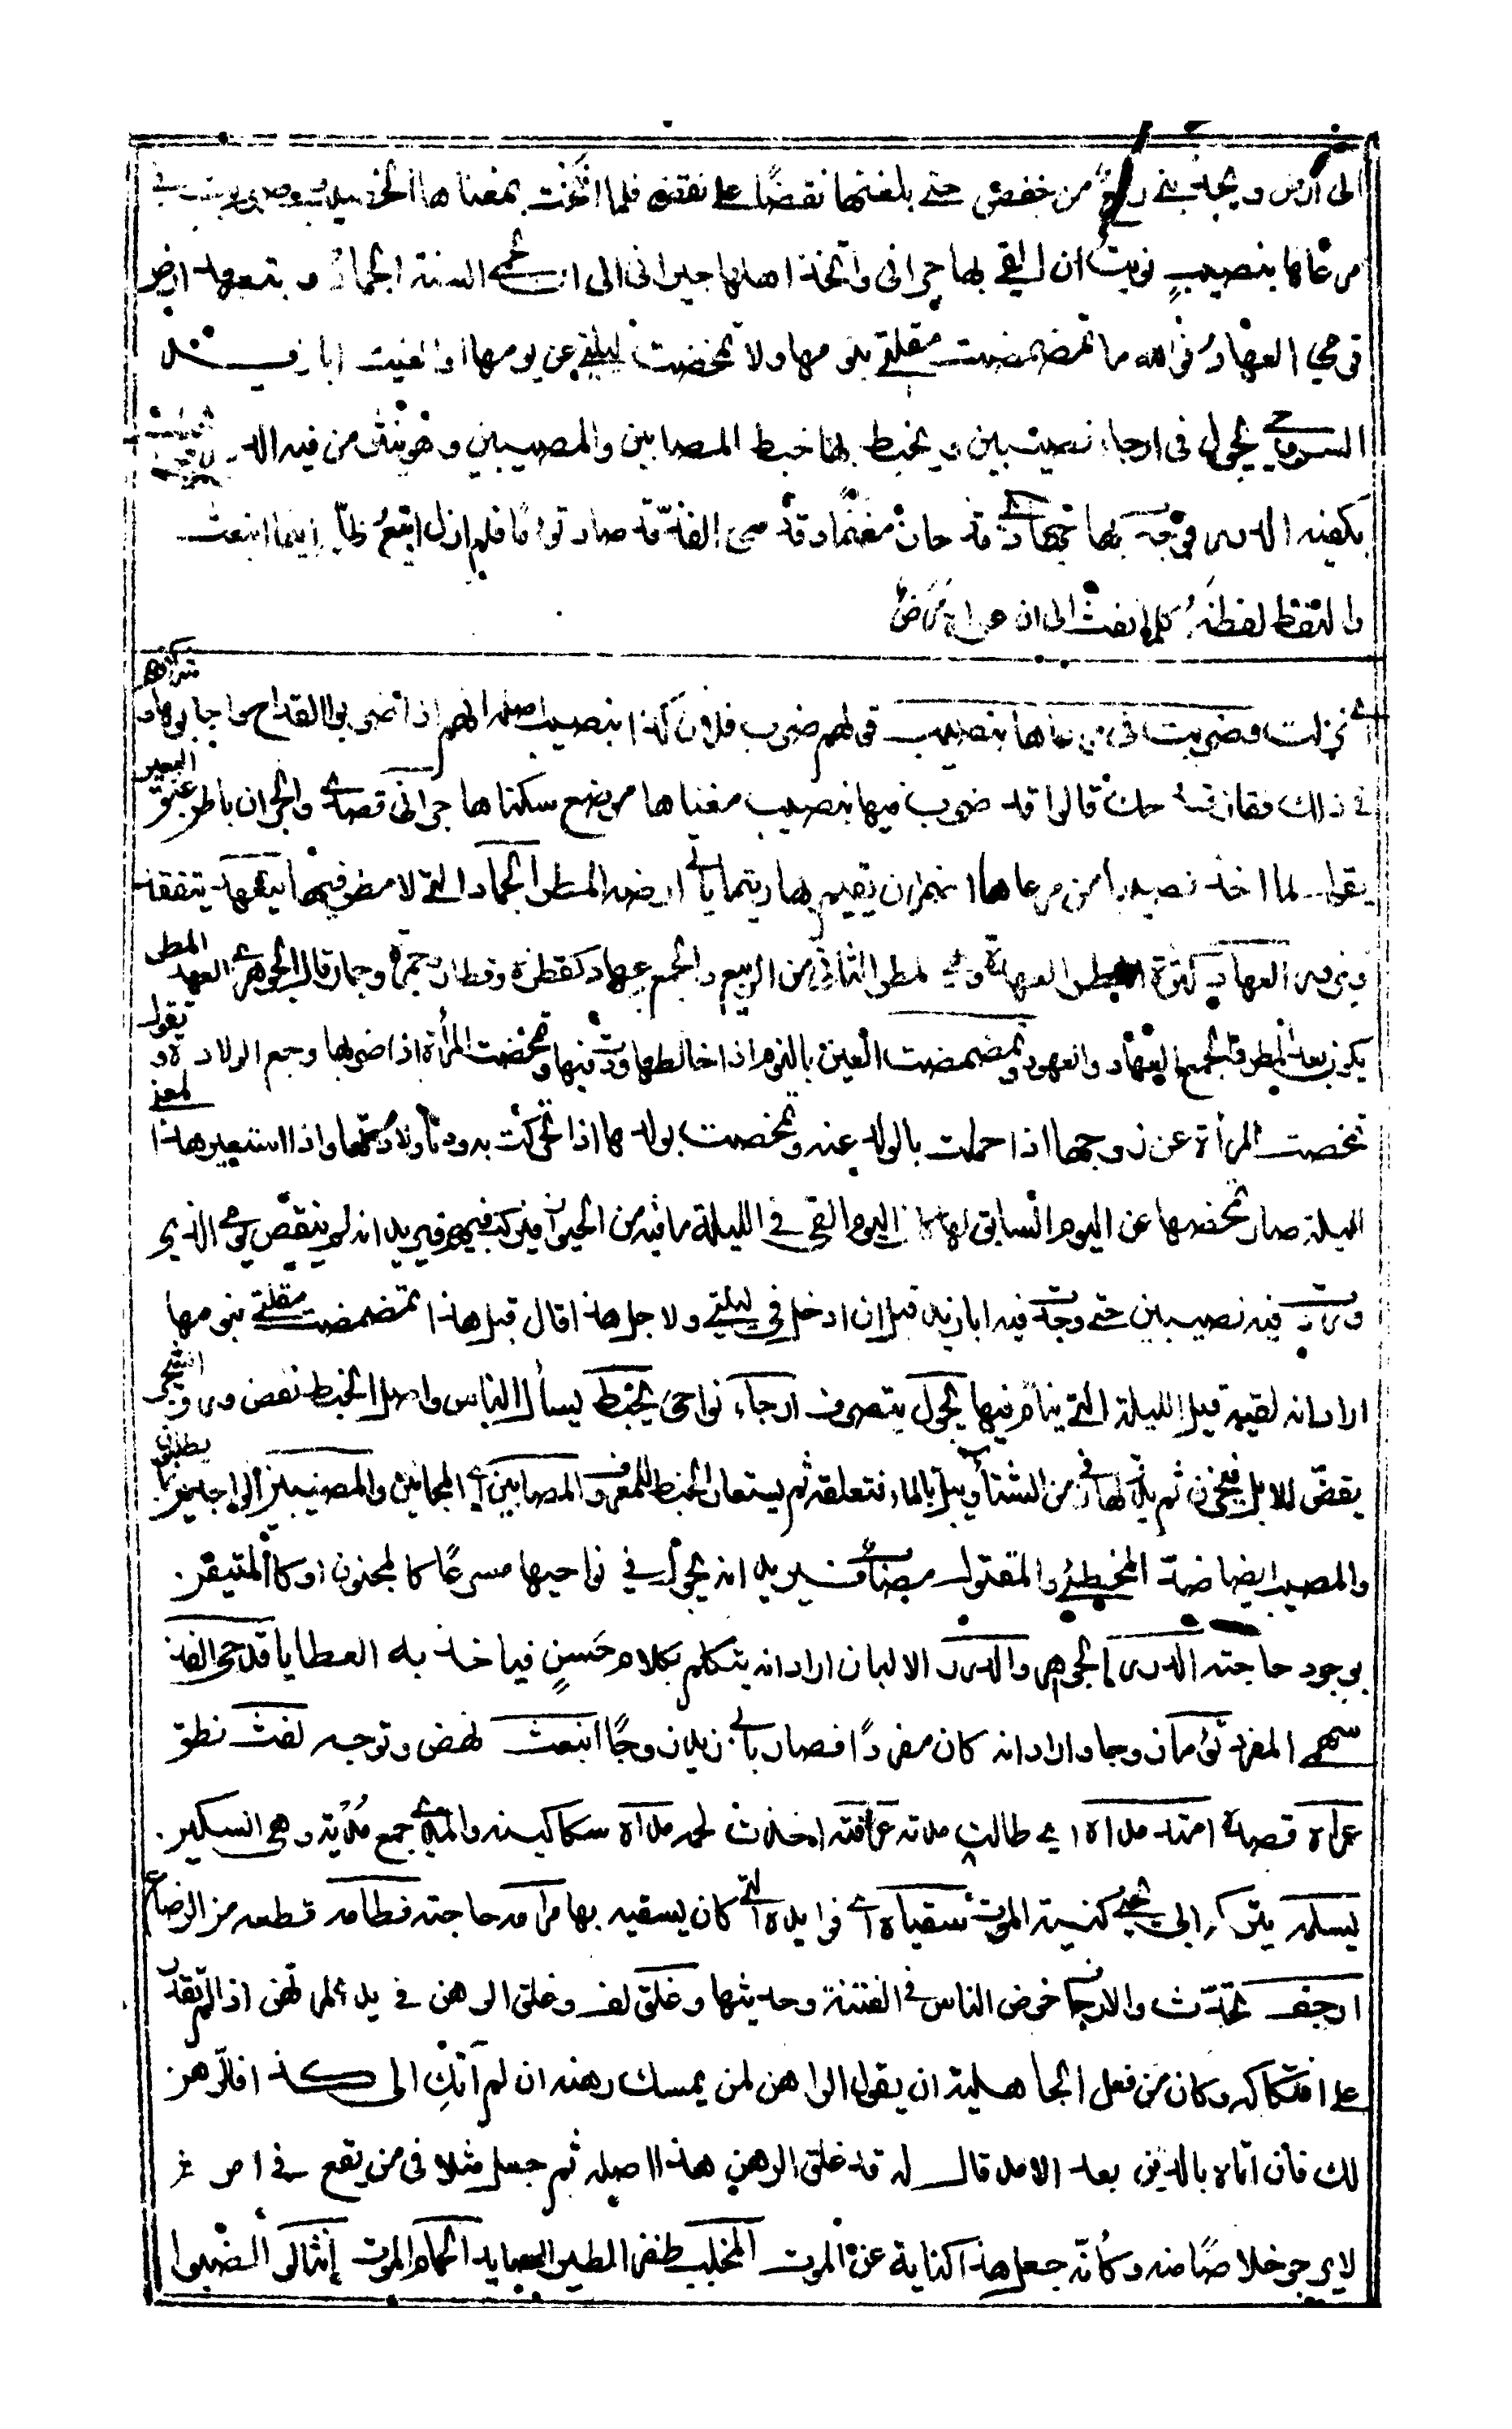 الى ارض ويجذبني رفع من خفض حتى بلغتها نقضا على نقض فلما انخت بمغناها الخصيب وضربت في
مرعاها بنصيب نويت ان القي بها جراني واتخذ اهلها جيراني الى ان تحيى السنة الجماد وتتعهد ارض
قومي العهاد فوالله ما تمضمضت مقلتي بنومها ولا تمخضت ليلتي عن يومها او الفيت ابا زيد
السروجي يجول في ارجاء نصيبين ويخبط بها خبط المصابين والمصيبين وهو ينثر من فيه الدرر
بكفيه الدرر فوجدت بها جهادي قد حاز مغنما وقدحي الفذ قد صار توأما فلم ازل اتبع ظله اينما انبعث
والتقط لفظه كلما نفث الى ان عراه مرض
اي نزلت وضربت في مرعاها بنصيب قولهم ضرب فلان كذا بنصيب اصله انهم اذا ضربوا القداح
في ذلك ففاز قدح قالوا قد ضرب فيها بنصيب مغناها موضع سكناها جراني قصدي والجران باطن عنق البعير
يقول لما اخذ نصيبا من مرعاها ان يقيم بها ريثما يأتي ارضه المطر الجماد التي لا مطر فيها تتعهد تتفقد
العهاد كثرة المطر العهدة وهي المطر الثاني من الربيع والجمع عهاد كقطرة وقطار وجمرة وجمار قال الجوهري العهد المطر
يكون بعد المطر والجمع العهاد والعهود وتمضمضت العين بالنوم اذا خالطها وتمخضت المرأة اذا ضربها وجع الولادة تقول
تمخضت المرأة عن زوجها اذا حملت بالولد عنه وتمخضت بولدها اذا تحركت بدونا ولادتها واذا استعير هذا المعنى
لليلة صار تمخضها عن اليوم السابق لها اليوم القى في الليلة ما فيه من الحيوان فيريد انه لم ينقض يومي الذي
وردت فيه نصيبين حتى وجدت فيه ابا زيد قبل ان ادخل في ليلتي ولاجل هذا قال قبل هذا تمضمضت مقلتي بنومها
اراد انه لقيه قبل الليلة التي ينام فيها يجول يتصرف ارجاء نواحي يخبط يسأل الناس واصل الخبط نفض ورق الشجر
للابل ثم من الشتا ويبل بالماء فتعلفه ثم يستعار الخبط للمعروف المصابين اي المجانين والمصيبين
والمصيب ايضا ضد المخطئ والمقتول مصاب فيريد انه يجول في نواحيها مسرعا كالمجنون او كالمتيقن
بوجود حاجته الدرر الجوهر والدرر الالبان اراد انه يتكلم بكلام حسن فياخذ به العطايا قدحي الفذ
سهمي المفرد توأما زوجا واراد انه كان مفردا فصار بابي زيد زوجا انبعث نهض وتوجه نفث نطق
عراه قصده امتد مداه اي طالت مدته عرقته اخذت لحمه مداه سكاكينه والمدى جمع مدية وهي السكين
يسلمه يتركه ابي يحيى كنية الموت سقياه اي فوايده التي كان يسقيه بها مرامه حاجته فطامه قطعه من الرضاع
ارجف تحدث والارجاف خوض الناس في الفتنة وحديثها وغلق لف وغلق الرهن في يد المرتهن اذا لم يقدر
على افتكاكه وكان من فعل الجاهلية ان يقول الراهن لمن يمسك رهنه ان لم آتك الى كذا فالرهن
لك فان اتاه بالدين بعد الامد قال له قد غلق الرهن هذا اصله ثم جعل مثلا في من يقع في امر
لا يرجو خلاصا منه وكأنه جعل هذا كناية عن الموت المخلب ظفر الطير الصايد الحمام الموت انثالوا انصبوا